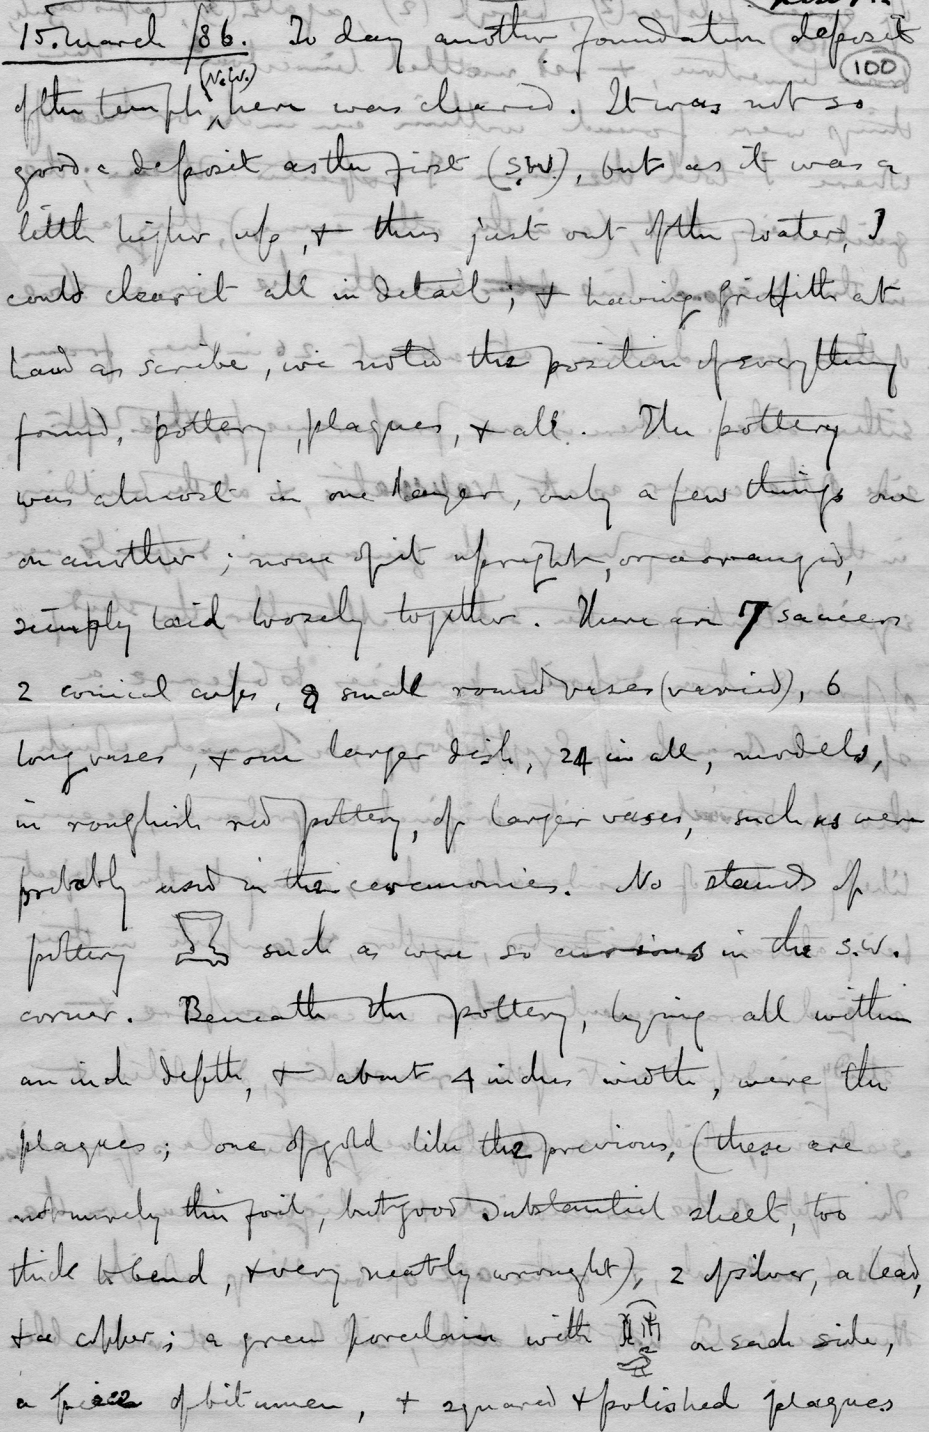 15. March /86. To day another foundation deposit
100
(N.W.)
of the temple here was cleared. It was not so
good a deposit as the first (S.W.), but as it was a
little higher up, & thus just out of the water, I
could clear it all in detail; & having Griffith at
hand as scribe, we noted the position of everything
found, pottery, plaques, & all. The pottery
was almost in one layer, only a few things one
on another; none of it upright, or arranged,
simply laid loosely together. There are 7 saucers
2 conical cups, 8 small round vases (varied), 6
long vases, & one larger dish, 24 in all, models,
in roughish red pottery, of larger vases, such as were
probably used in the ceremonies. No stands of
pottery such as were so curious in the S.W.
corner. Beneath the pottery, lying all within
an inch depth, & about 4 inches width, were the
plaques; one of gold like the previous, (these are
not merely thin foil, but good substantial sheet, too
thick to bend, & very neatly wrought), 2 of silver, a lead,
& a copper; a green porcelain with on each side,
a piece of bitumen, & squared & polished plaques